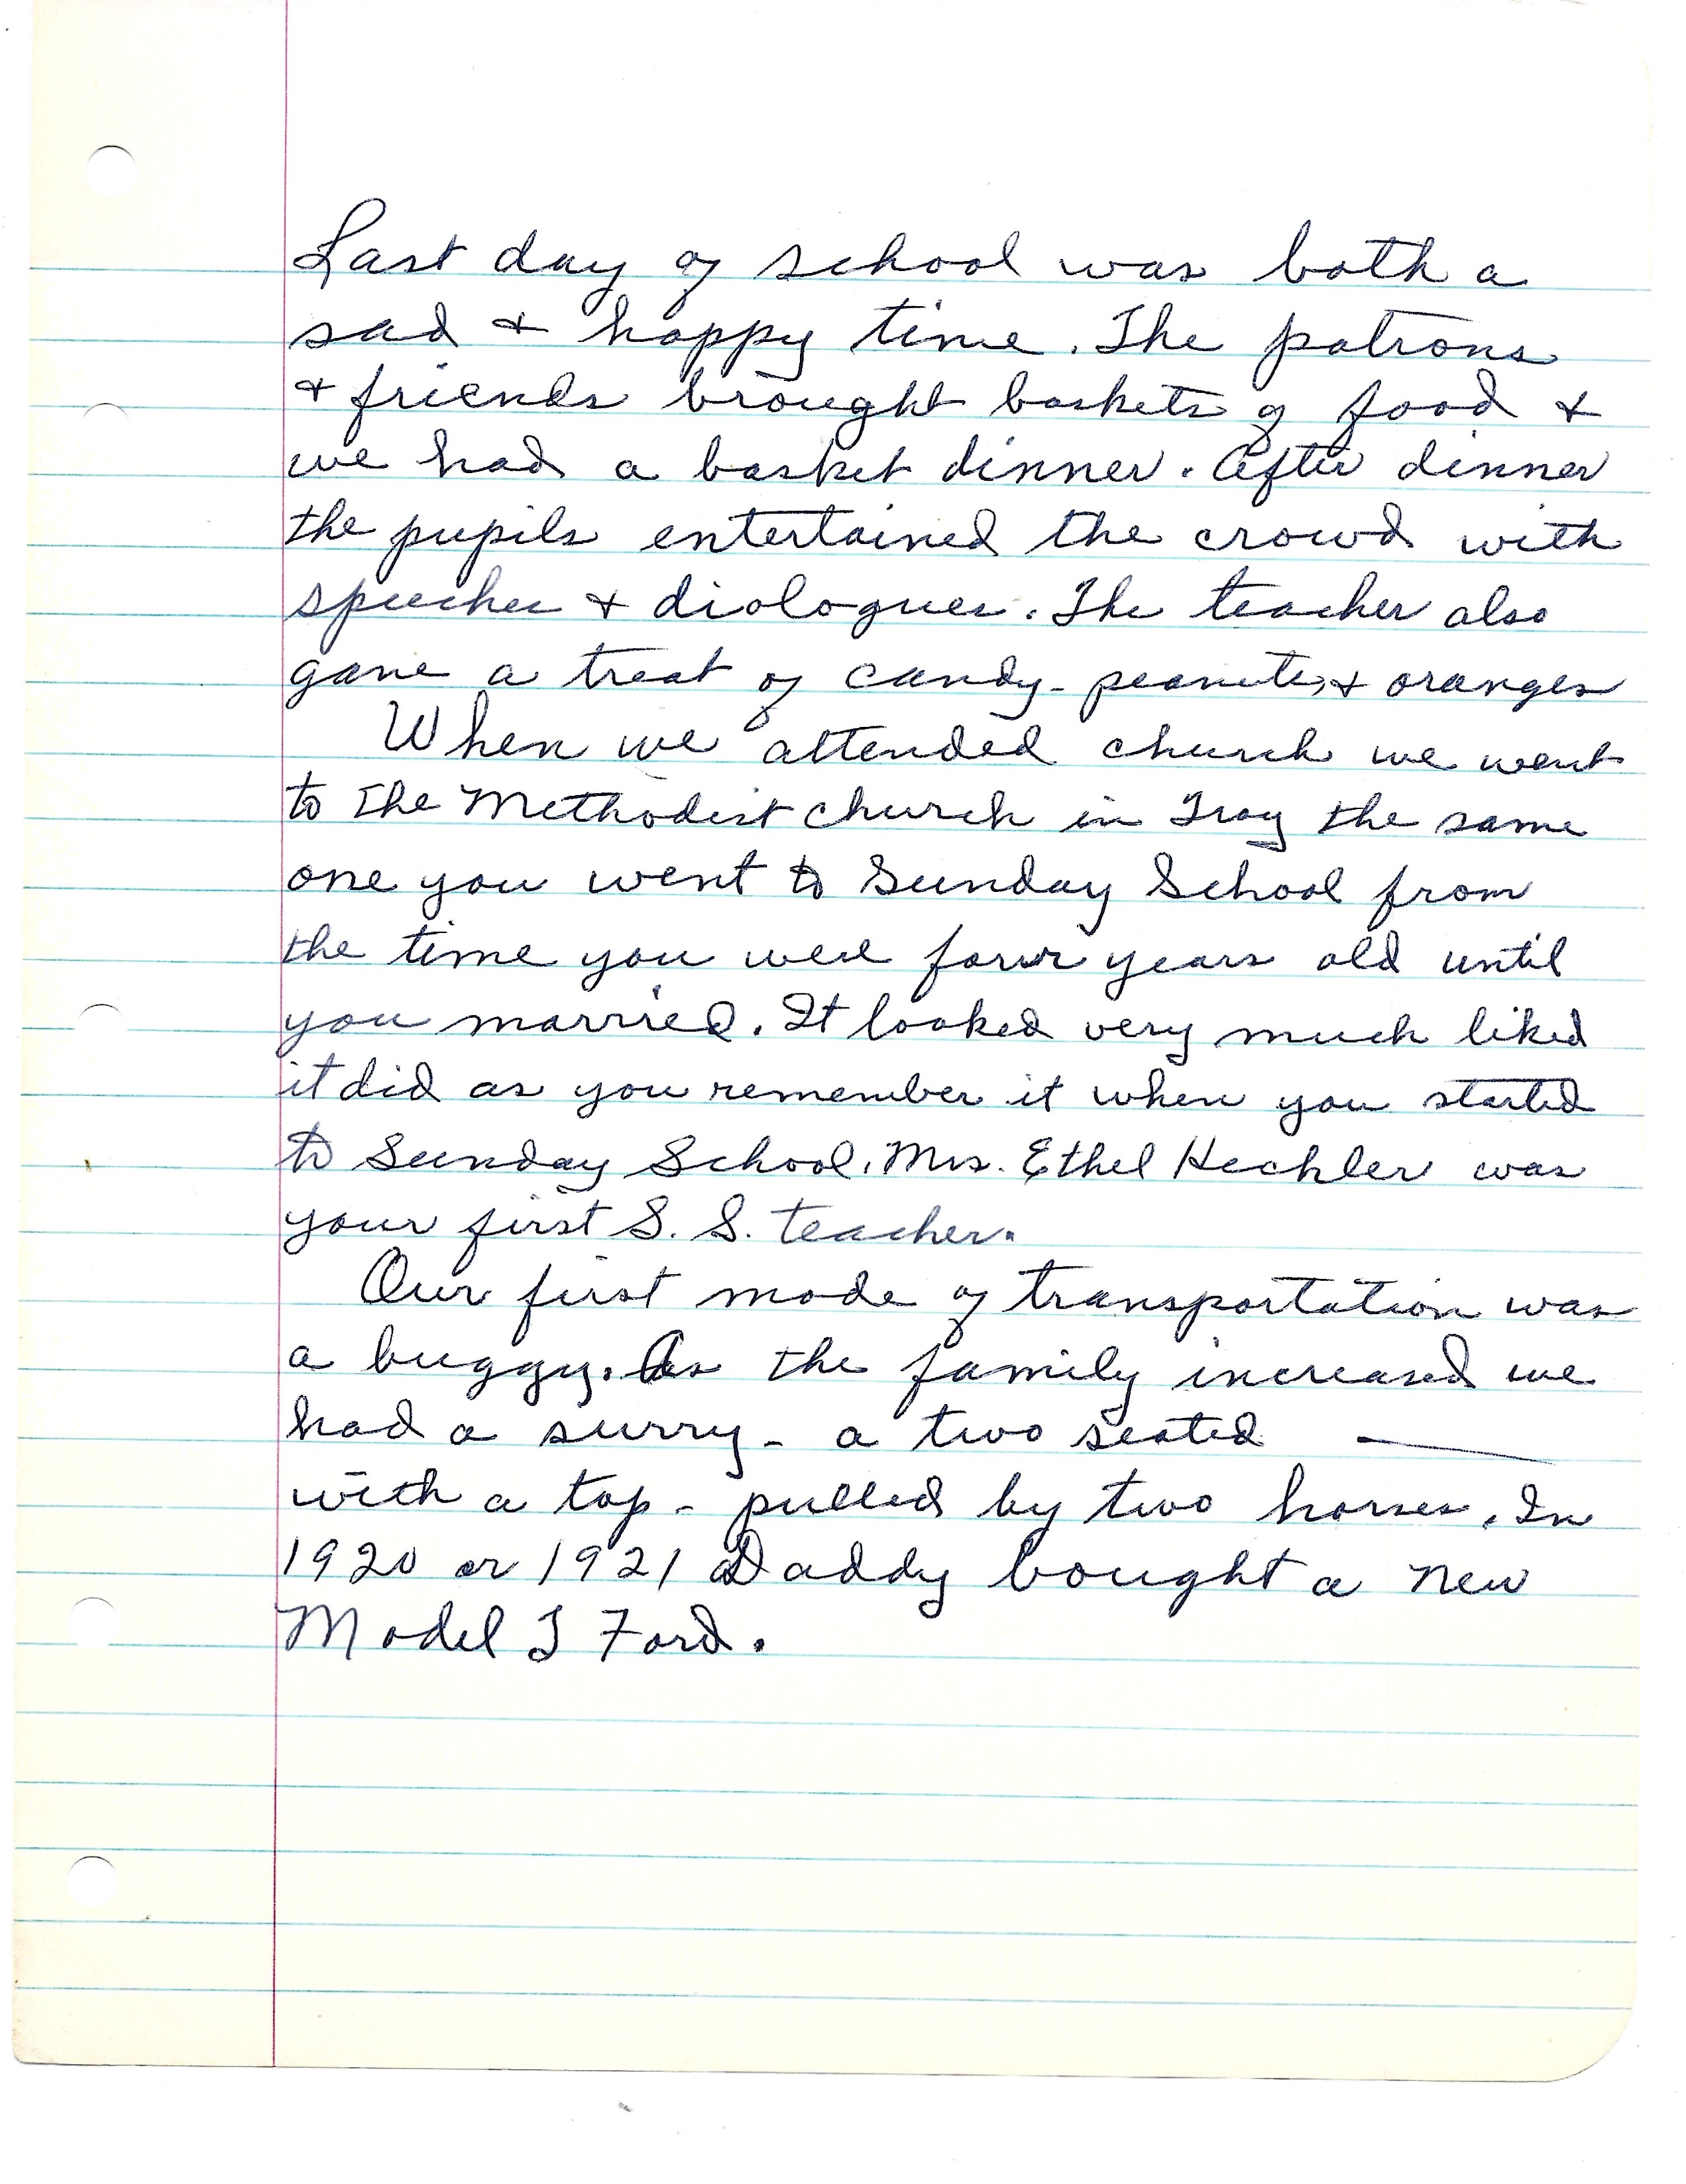 Last day of school was both a
sad & happy time. The patrons
& friends brought baskets of food &
we had a basket dinner. After dinner
the pupils entertained the crowd with
speeches & diologues. The teacher also
gave a treat of candy - peanuts, & oranges
When we attended church we went
to the Methodist church in Troy the same
one you went to Sunday School from
the time you were four years old until
you married. It looked very much liked
it did as you remember it when you started
to Sunday School. Mrs. Ethel Heckler was
your first S. S. teacher.
Our first mode of transportation was
a buggy. As the family increased we
had a surry - a two seated ——
with a top - pulled by two horses. In
1920 or 1921 Daddy bought a new
Model T Ford.